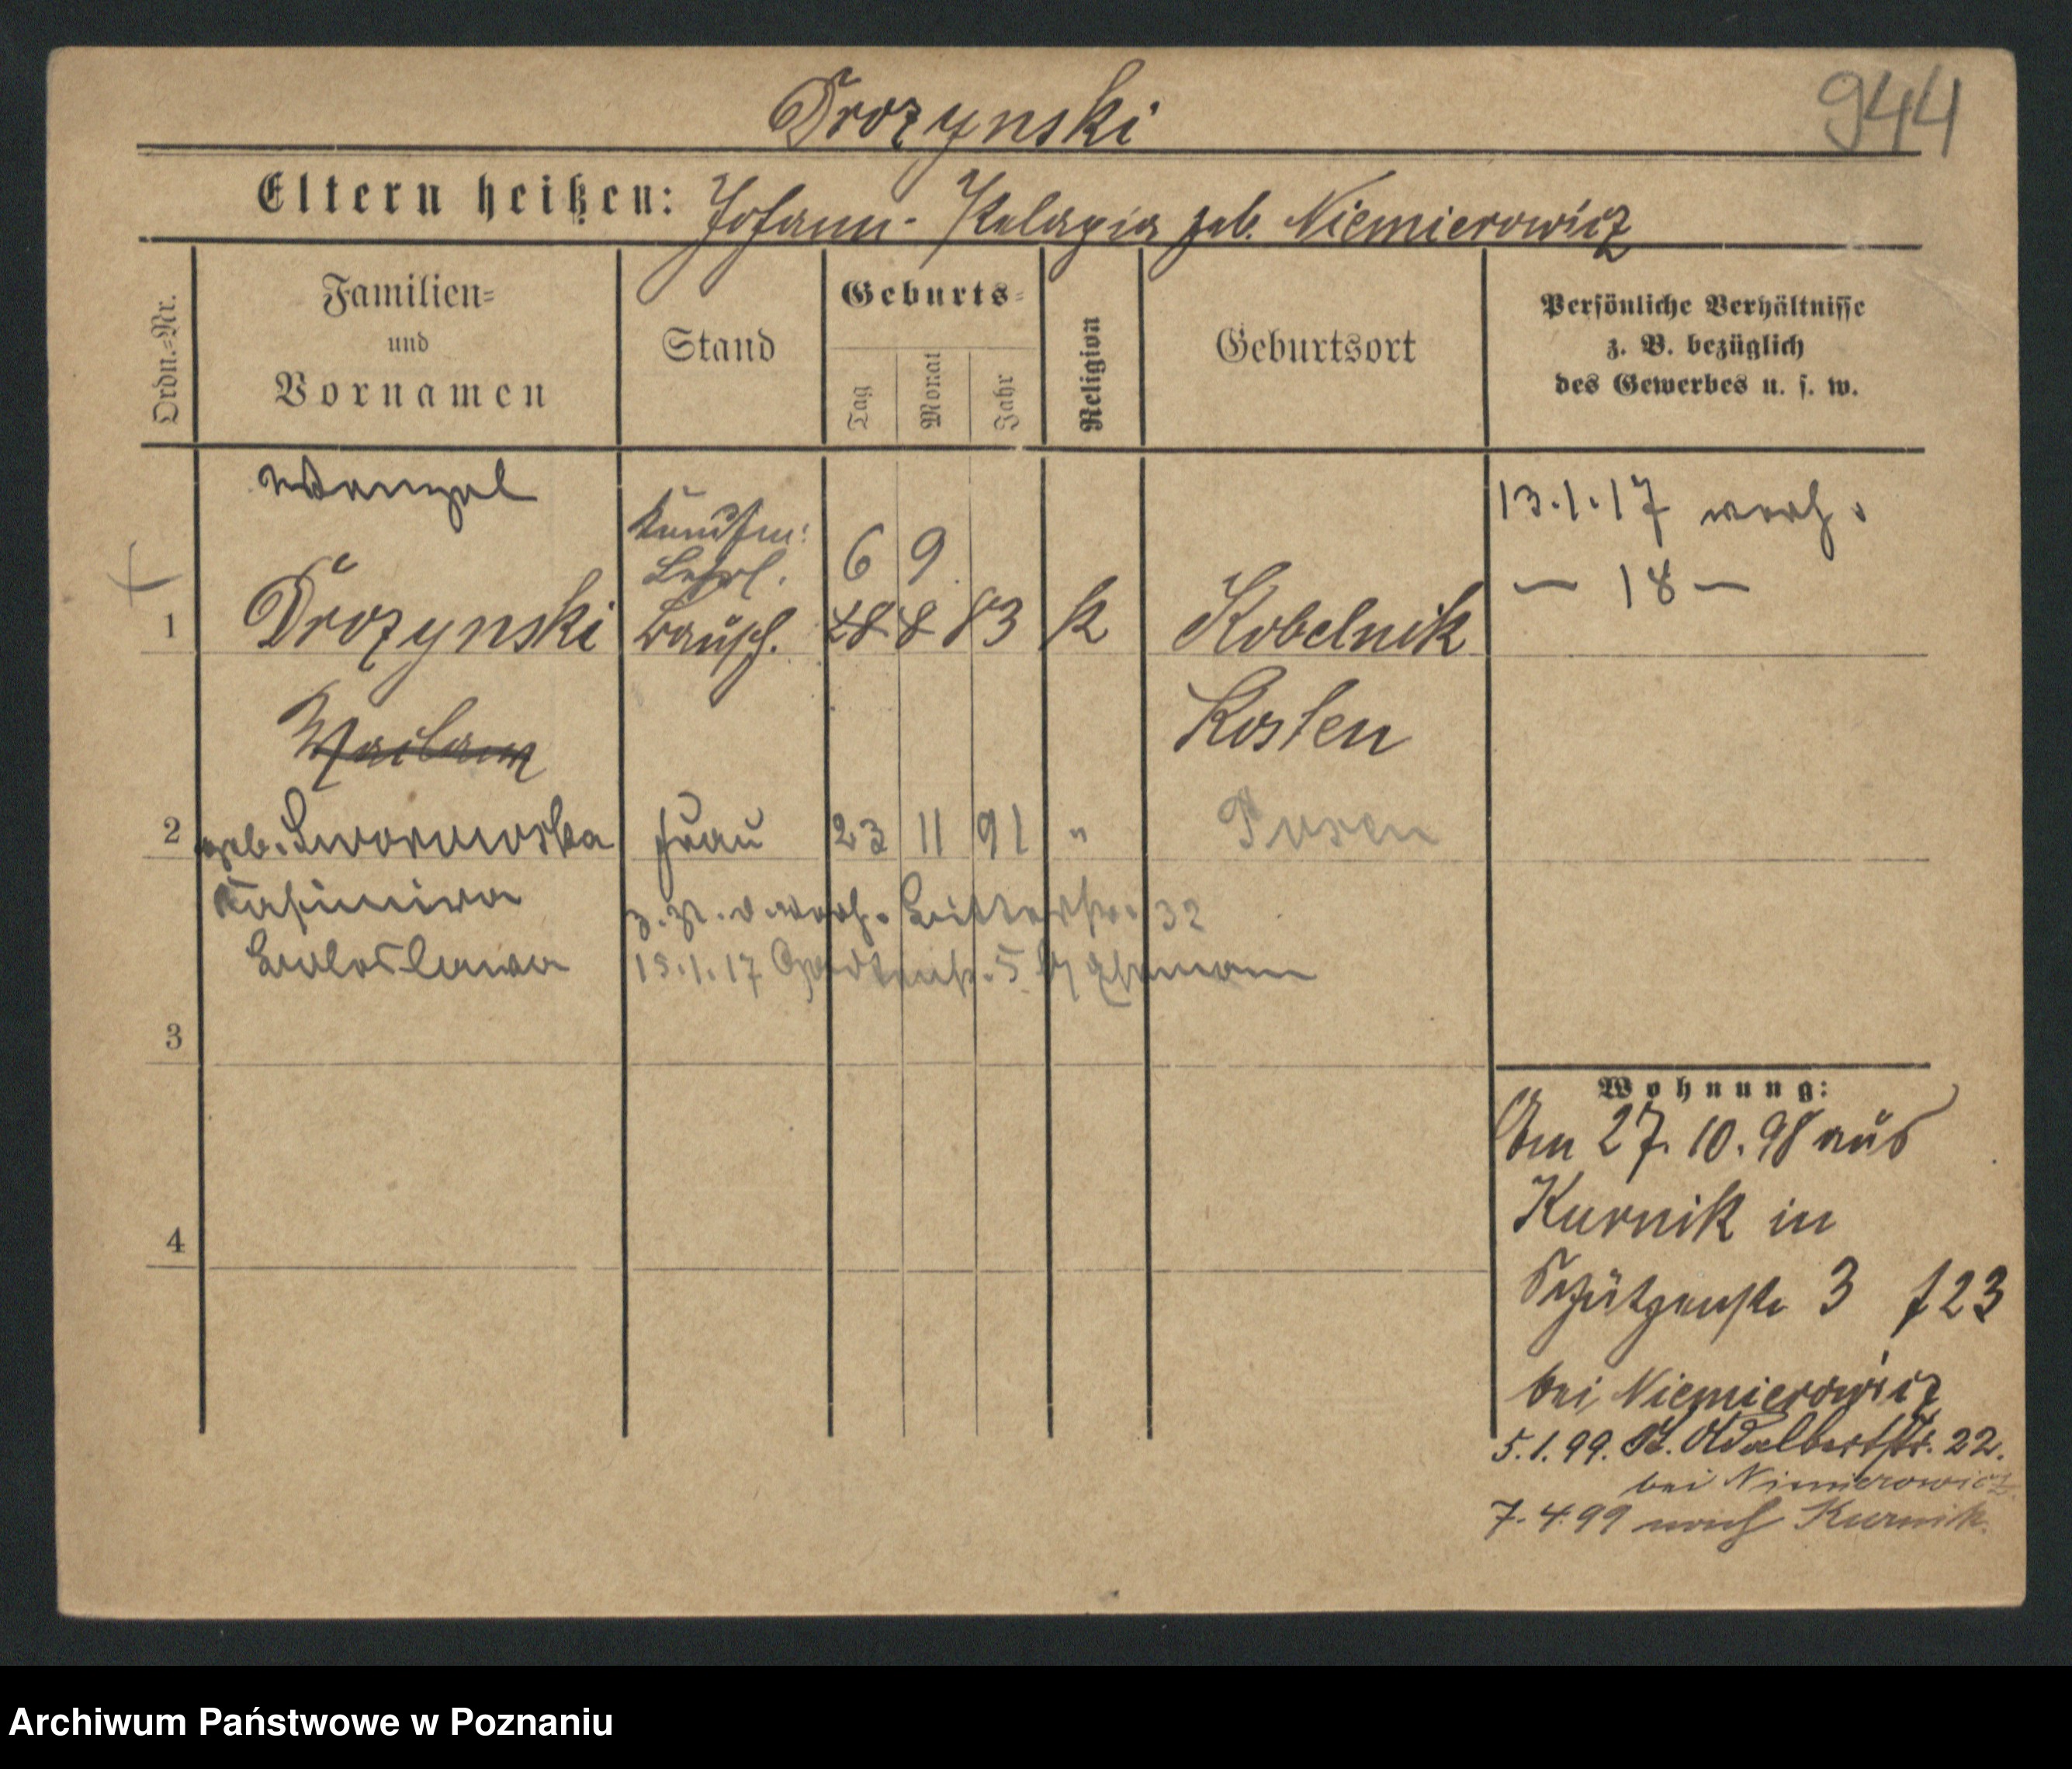 Drozynski
944
Eltern heißen: Johann - Pelagia geb. Niemierowicz
Ordn.=Nr.
Familien=
und
Vornamen
Stand
Geburts=
Tag
Monat
Jahr
Religion
Geburtsort
Persönliche Verhältnisse
z. B. bezüglich
des Gewerbes u. s. w.
Wenzel
Kaufm:
Lehrl.
6 9
13.1.17 verh.
— 18 —
1 Drozynski Bursch. 28 8 83 k Kobelnik
Waclaw
Kosten
2 geb. Frau 23 11 91 " Posen
Kasimira
z. Zt. 32
15.1.17 5
3
Wohnung:
Am 27. 10. 98 aus
Kurnik in
4
Schützenstr 3 f 23
bei Niemierowicz
5.1.99. St. Adalbertstr. 22.
bei Nimierowicz
7.4.99 nach Kurnik.
Archiwum Państwowe w Poznaniu